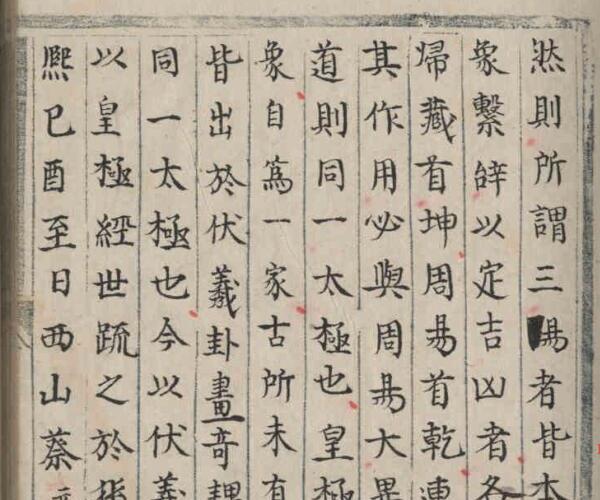 然則所謂三易者皆本
象繫辞以定吉凶者各
歸藏首坤周易首乾連
其作用必與周易大異
道則同一太極也皇極
象自為一家古所未有
皆出於伏羲卦畫奇謂
同一太極也今以伏羲
以皇極經世䟽之於後
熈巳酉至日西山蔡